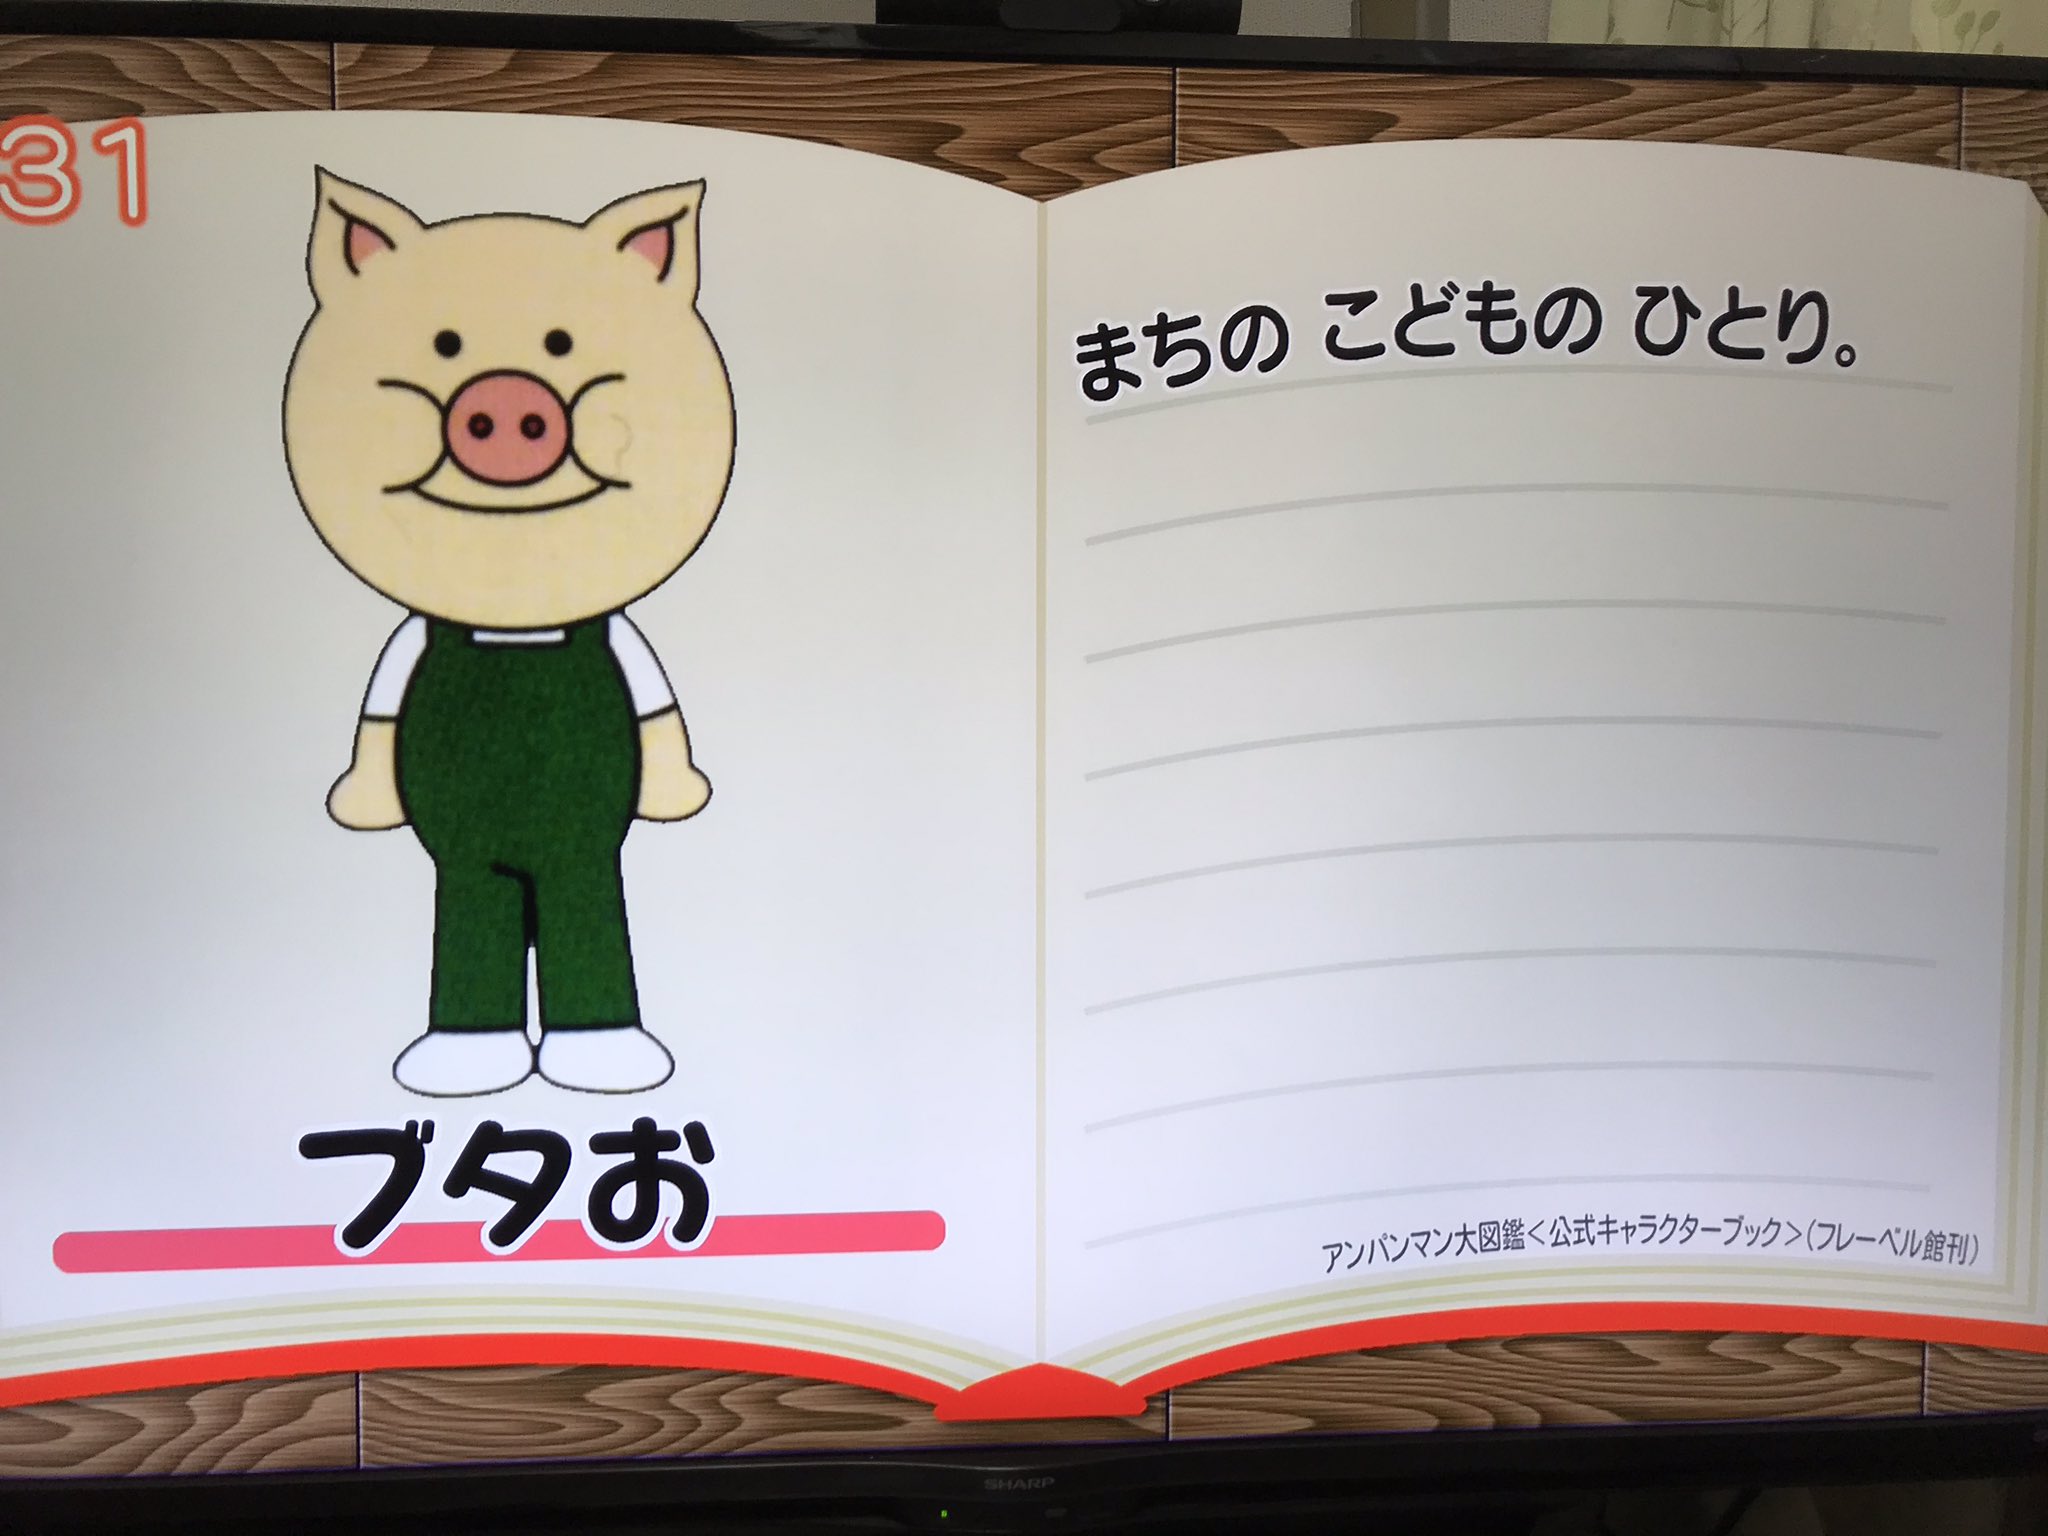 31
まちの こどもの ひとり。
ブタお
アンパンマン大図鑑<公式キャラクターブック>(フレーベル館刊)
SHARP